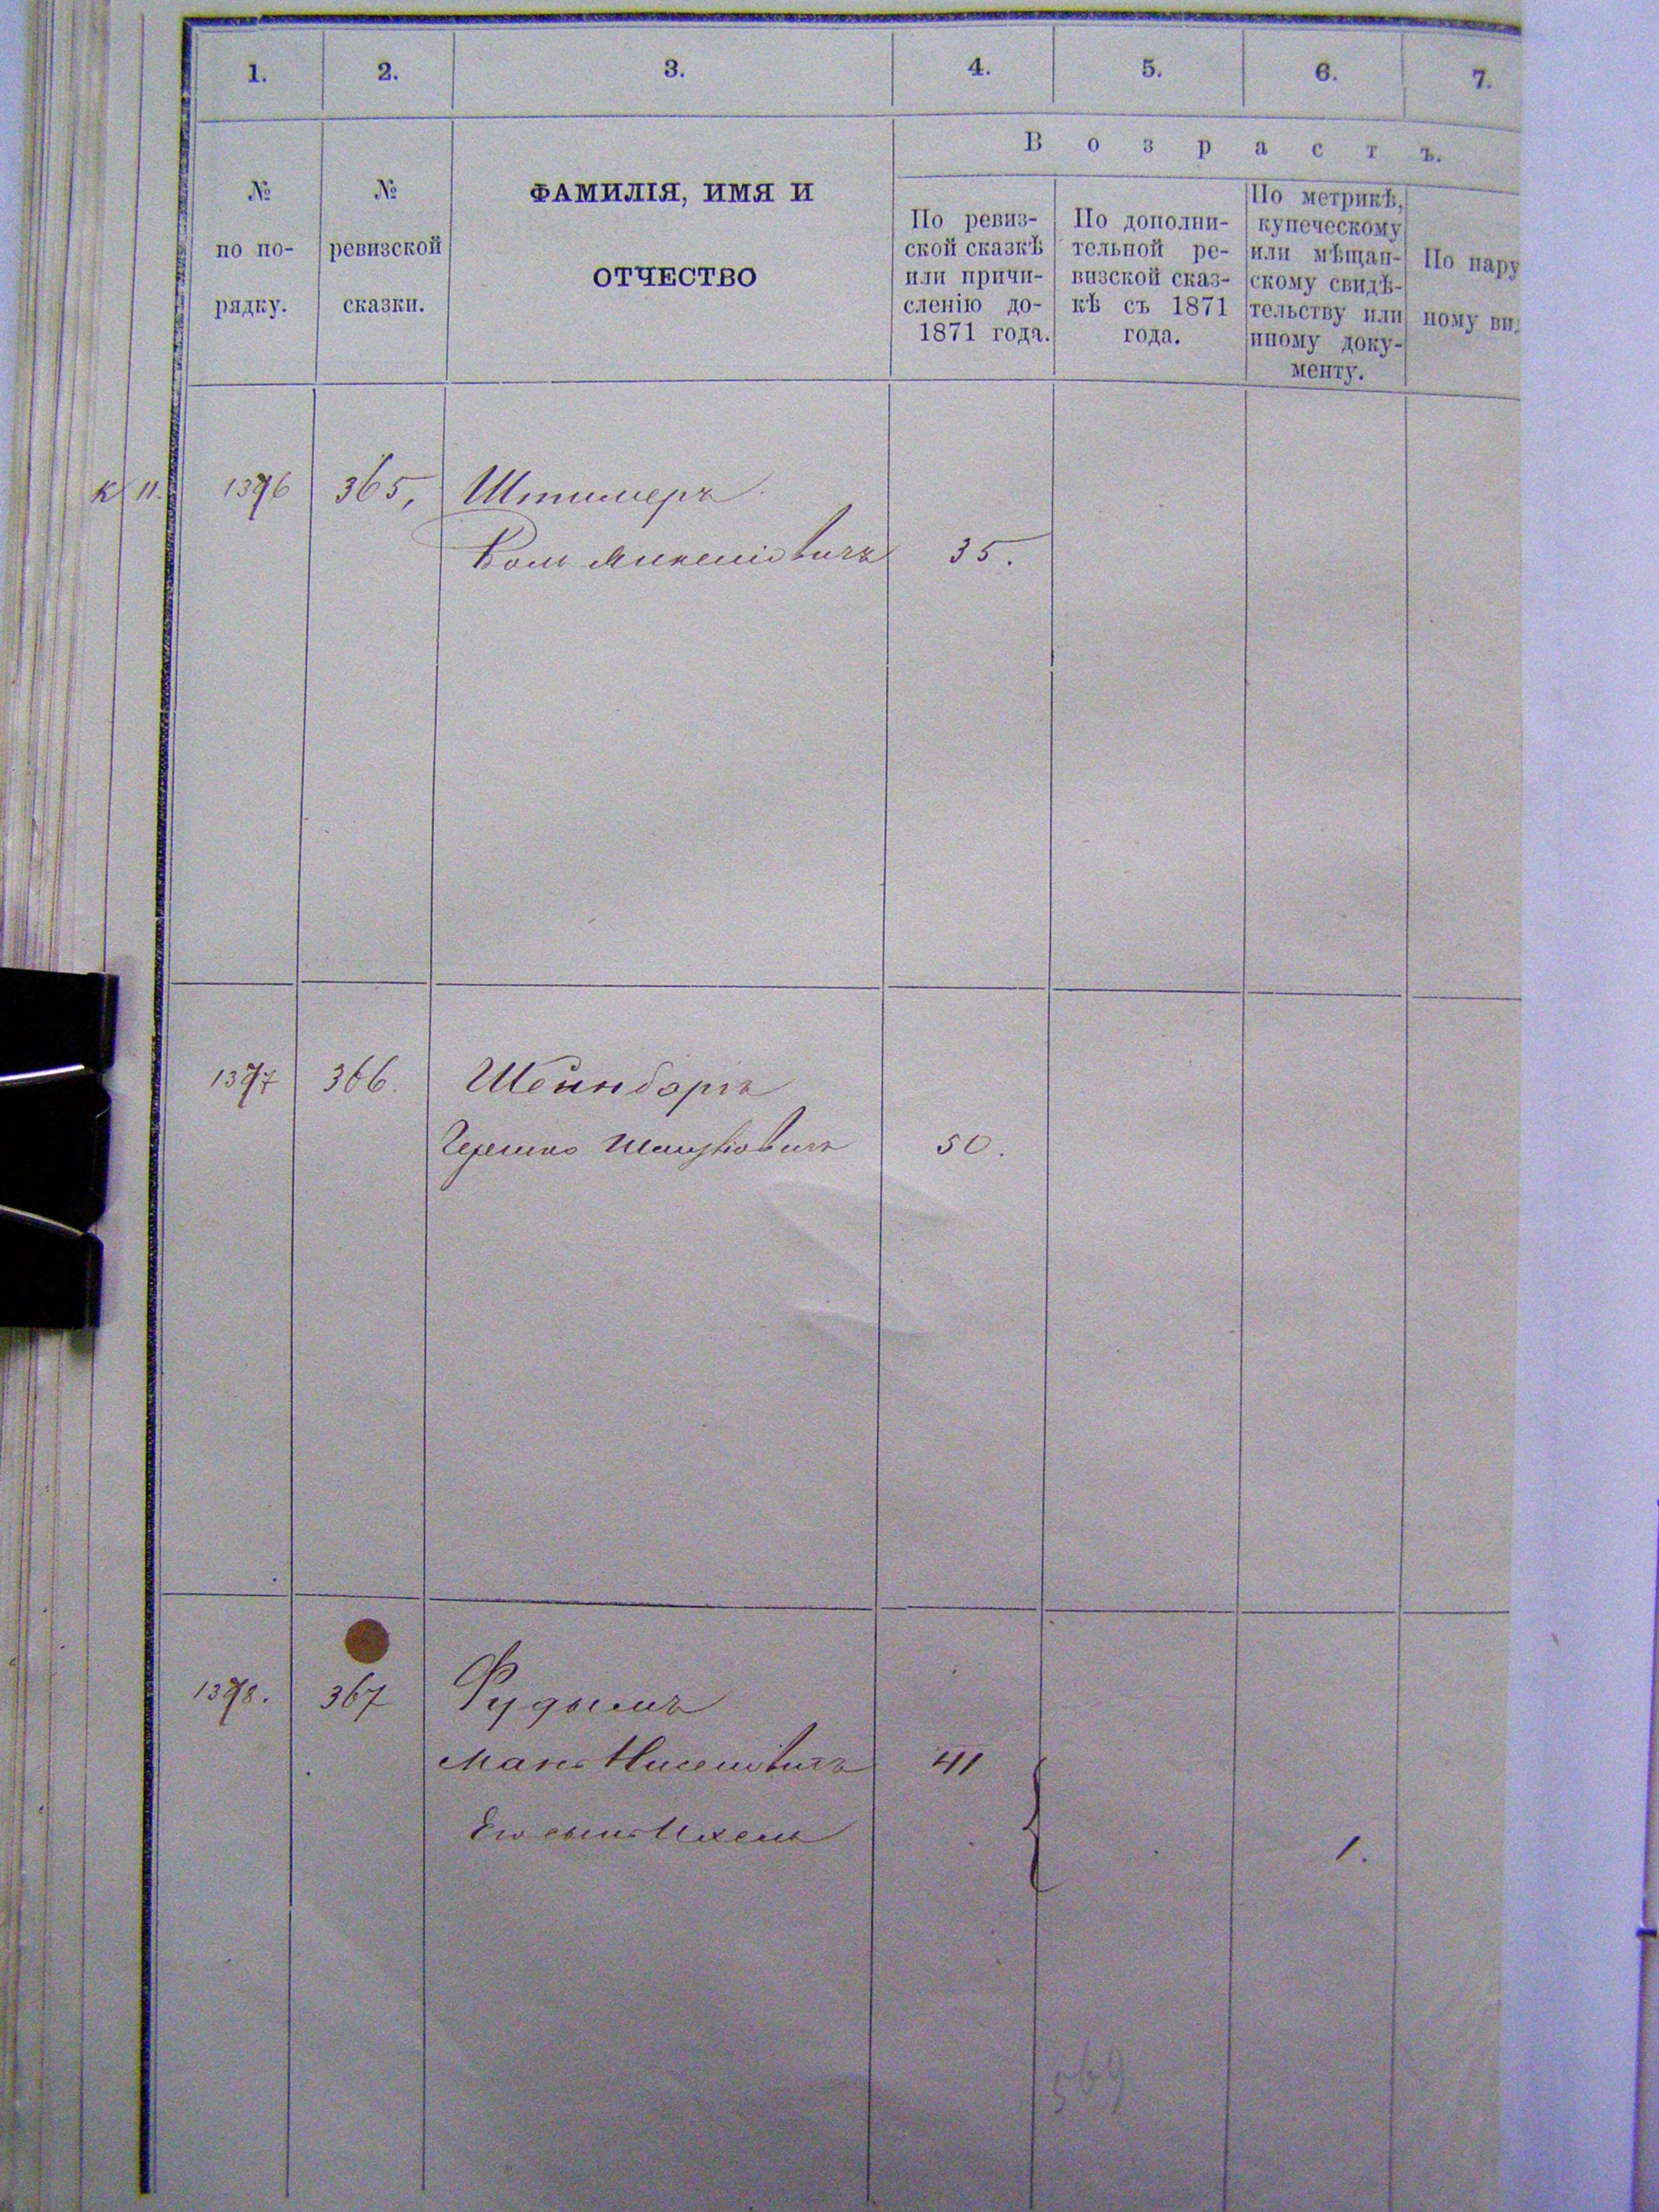 1. 2. 3. 4. 5. 6. 7.
В о з р а с т ъ.
№ по по- рядку.
№ ревизской сказки.
ФАМИЛІЯ, ИМЯ И
ОТЧЕСТВО
По ревиз-
ской сказкѣ
или причи-
сленію до-
1871 года.
По дополни-
тельной ре-
визской сказ-
кѣ съ 1871
года.
По метрикѣ,
купеческому
или мѣщан-
скому свидѣ-
тельству или
иному доку-
менту.
По нару
ному ви
к 11. 1376 365, Штимеръ
35.
1377 366. Шейнборгъ
Гершко 50.
1378. 367 Фудымъ
Нисеновичъ 41
Его сынъ Ихель 1.
569